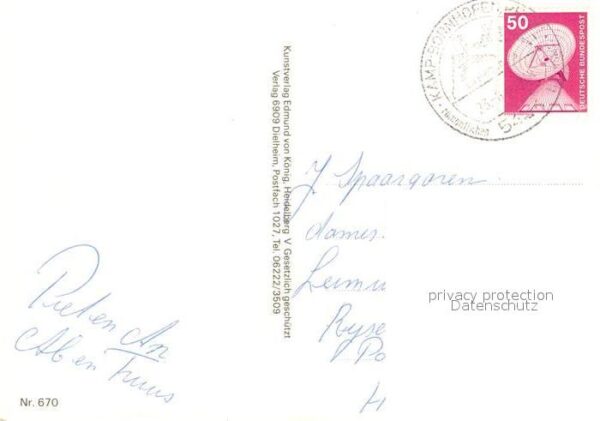 50
DEUTSCHE BUNDESPOST
KAMP-BORNHOFEN
Kunstverlag Edmund von König, Heidelberg V Gesetzlich geschützt
Verlag 6909 Dielheim, Postfach 1027, Tel. 06222/3509
J. Spaargaren
dames.
Leimu
Ryse
Po
H
privacy protection
Datenschutz
Piet en An
Ab en Truus
Nr. 670